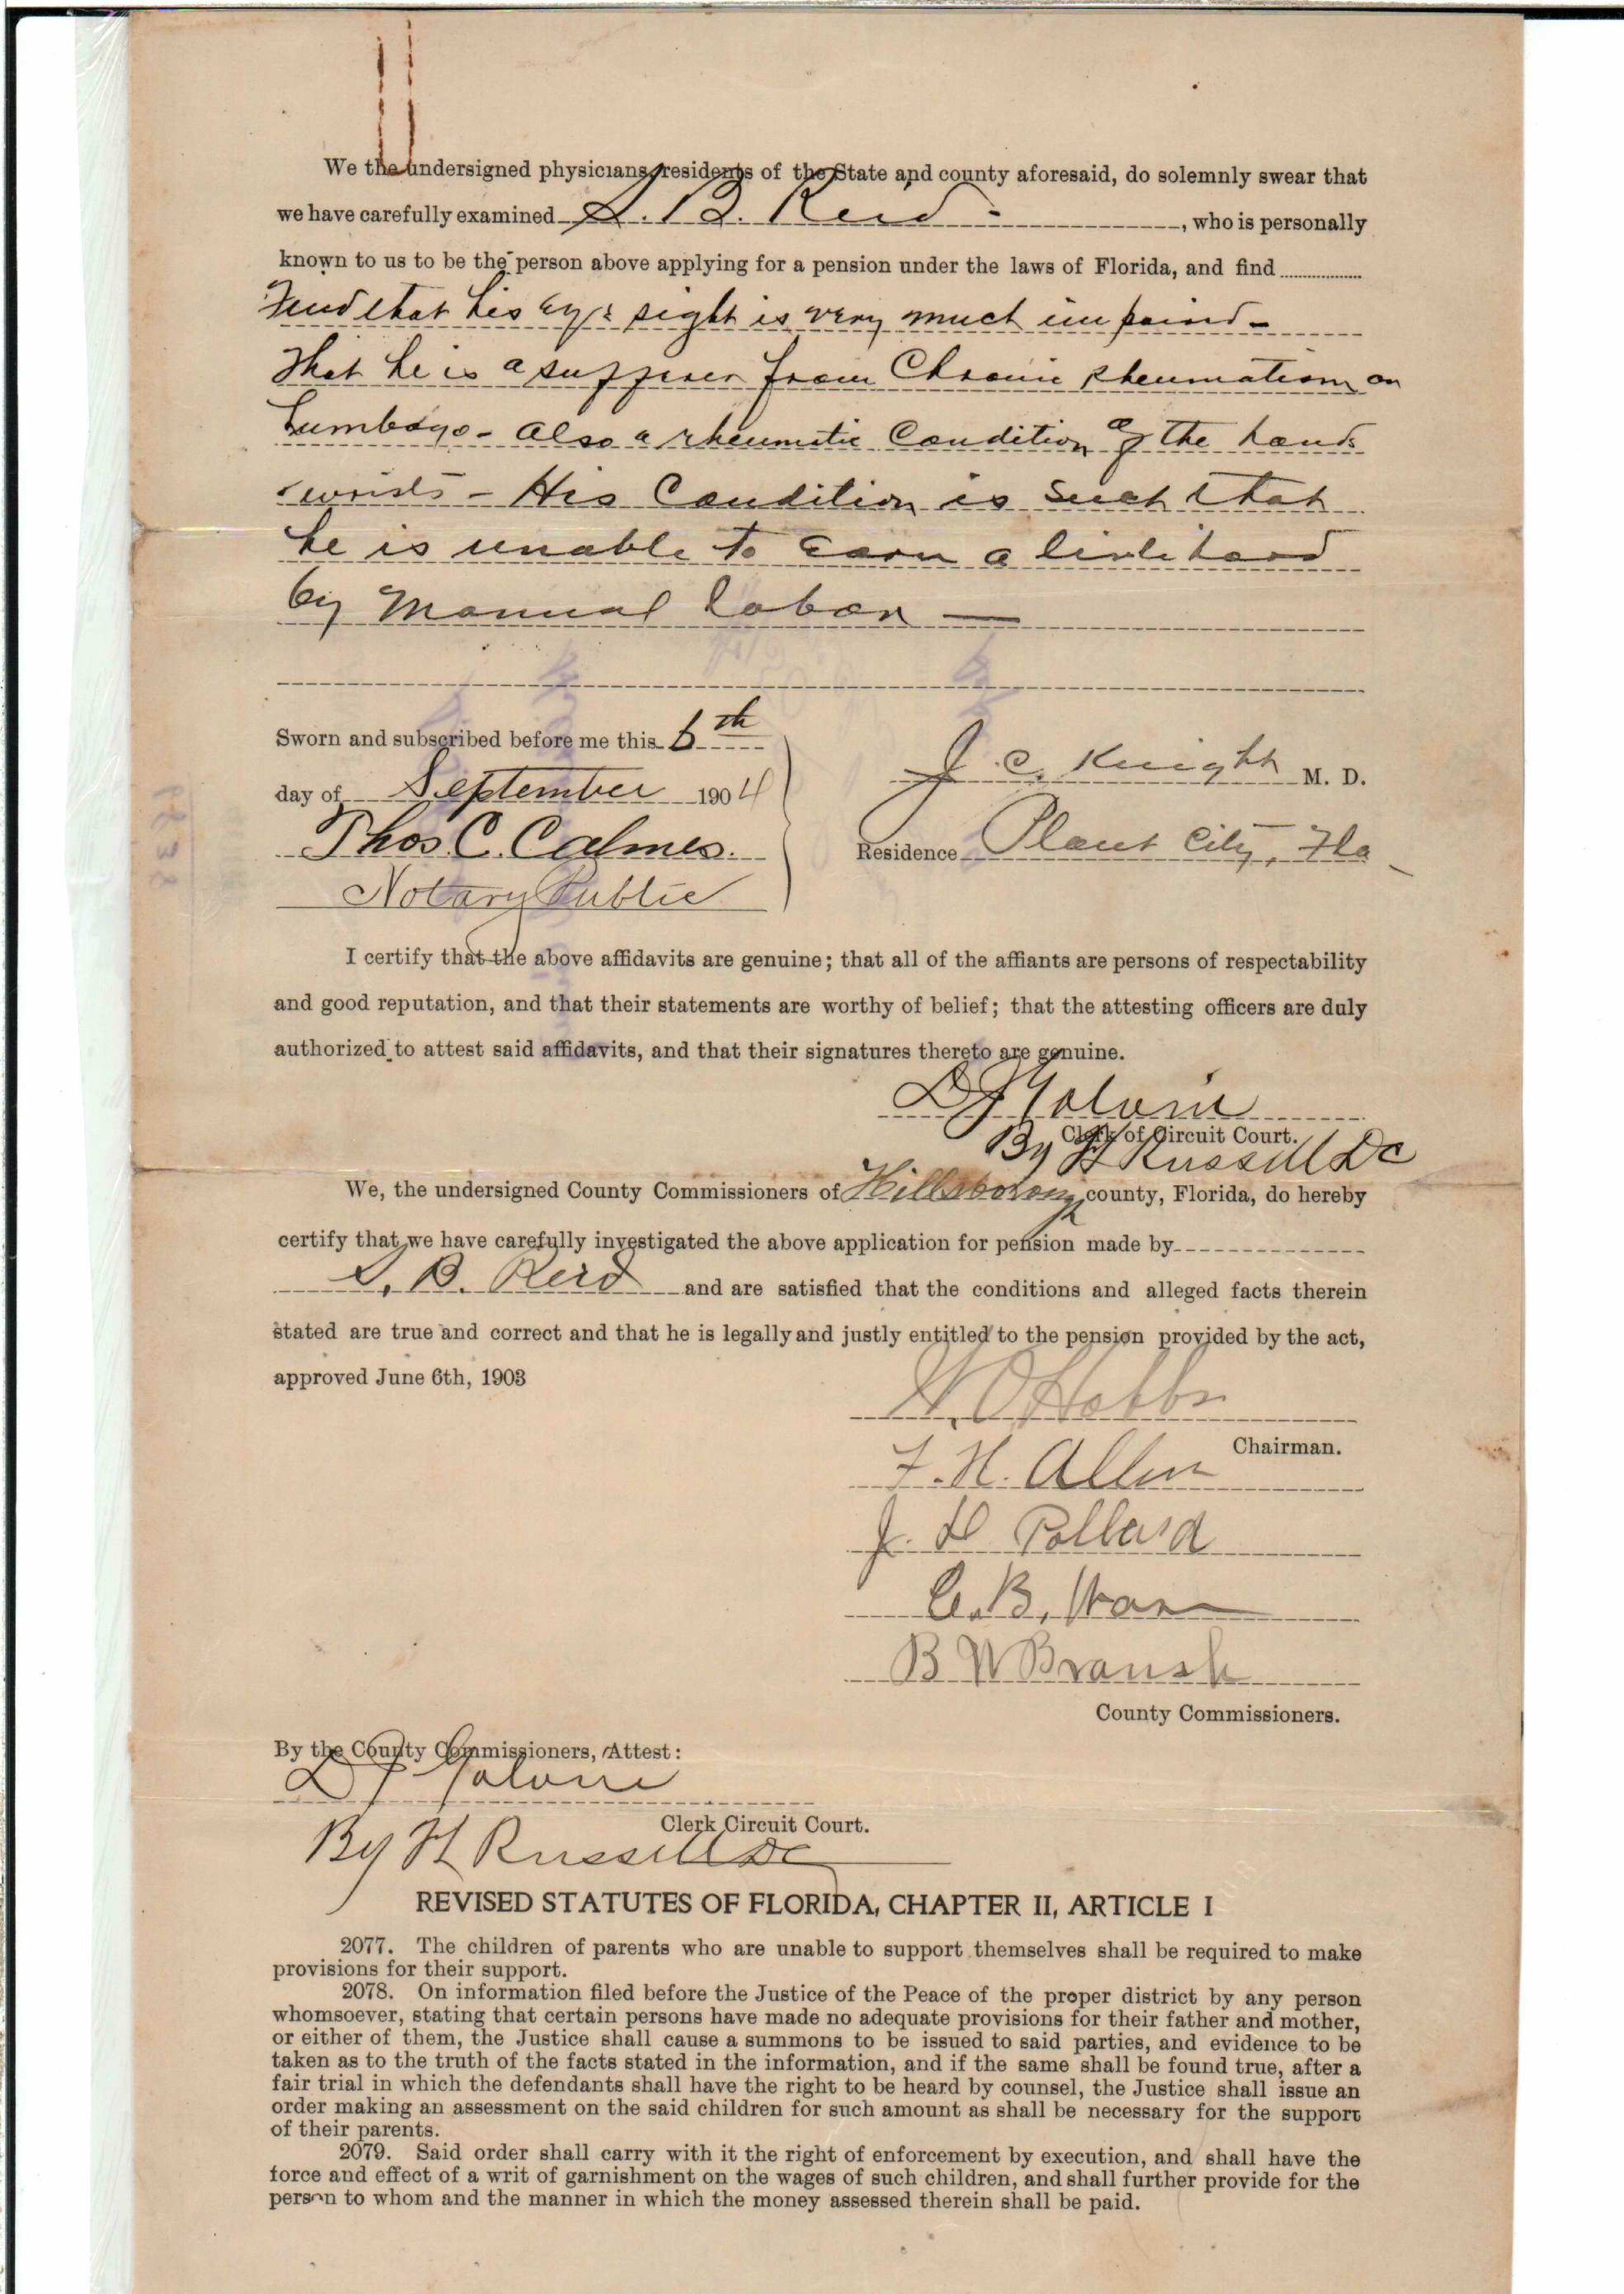 We the undersigned physicians, residents of the State and county aforesaid, do solemnly swear that
we have carefully examined S. B. Reid -, who is personally
known to us to be the person above applying for a pension under the laws of Florida, and find
find that his eye sight is very much impaired -
That he is a sufferer from Chronic Rheumatism or
Lumbago - also a rheumatic Condition of the hands
& wrists - His Condition is such that
he is unable to earn a livlihood
by manual labor —
Sworn and subscribed before me this 6th
day of September 1904
J. C. Knight M. D.
Thos. C. Calmes.
Residence Plant City, Fla
Notary Public
I certify that the above affidavits are genuine; that all of the affiants are persons of respectability
and good reputation, and that their statements are worthy of belief; that the attesting officers are duly
authorized to attest said affidavits, and that their signatures thereto are genuine.
D F Galvin
Clerk of Circuit Court.
By H Russell DC
We, the undersigned County Commissioners of Hillsboroug county, Florida, do hereby
certify that we have carefully investigated the above application for pension made by
S. B. Reid and are satisfied that the conditions and alleged facts therein
stated are true and correct and that he is legally and justly entitled to the pension provided by the act,
approved June 6th, 1903
Hobbs
Chairman.
F. H. Allen
J. D Pollard
C. B.
B W
County Commissioners.
By the County Commissioners, Attest:
D F Galvin
Clerk Circuit Court.
By H Russell DC
REVISED STATUTES OF FLORIDA, CHAPTER II, ARTICLE I
2077. The children of parents who are unable to support themselves shall be required to make
provisions for their support.
2078. On information filed before the Justice of the Peace of the proper district by any person
whomsoever, stating that certain persons have made no adequate provisions for their father and mother,
or either of them, the Justice shall cause a summons to be issued to said parties, and evidence to be
taken as to the truth of the facts stated in the information, and if the same shall be found true, after a
fair trial in which the defendants shall have the right to be heard by counsel, the Justice shall issue an
order making an assessment on the said children for such amount as shall be necessary for the support
of their parents.
2079. Said order shall carry with it the right of enforcement by execution, and shall have the
force and effect of a writ of garnishment on the wages of such children, and shall further provide for the
person to whom and the manner in which the money assessed therein shall be paid.